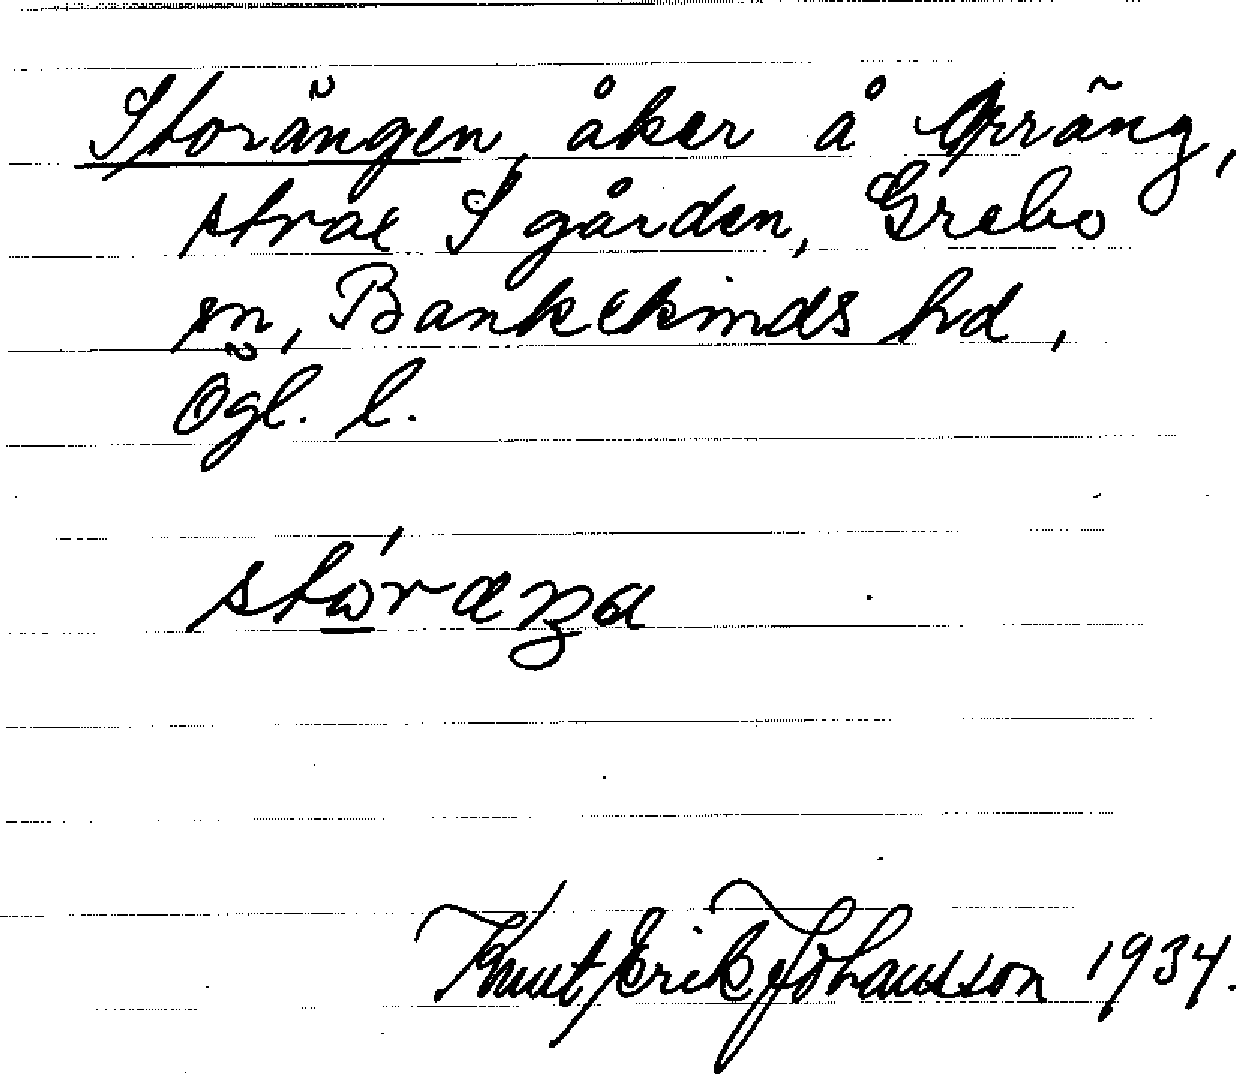 Storängen, åker å Orräng,
strax S gården, Grebo
sn, Bankekinds hd,
Ögl. l.
Knut Erik Johansson 1934.